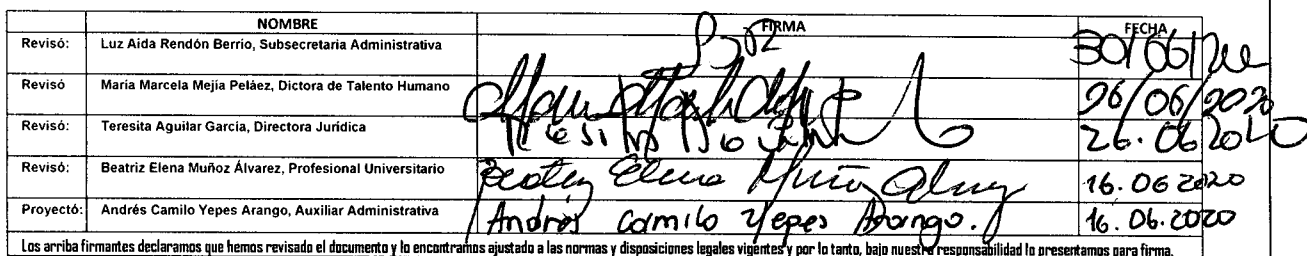 NOMBRE FIRMA FECHA
Revisó: Luz Aida Rendón Berrio, Subsecretaria Administrativa 30/06/
Revisó María Marcela Mejía Peláez, Dictora de Talento Humano 26/06/2020
Revisó: Teresita Aguilar García, Directora Jurídica 26.06 2020
Revisó: Beatriz Elena Muñoz Álvarez, Profesional Universitario Beatriz Elena Muñoz 16.06 2020
Proyectó: Andrés Camilo Yepes Arango, Auxiliar Administrativa Andrés Camilo Yepes Arango. 16.06.2020
Los arriba firmantes declaramos que hemos revisado el documento y lo encontramos ajustado a las normas y disposiciones legales vigentes y por lo tanto, bajo nuestra responsabilidad lo presentamos para firma.